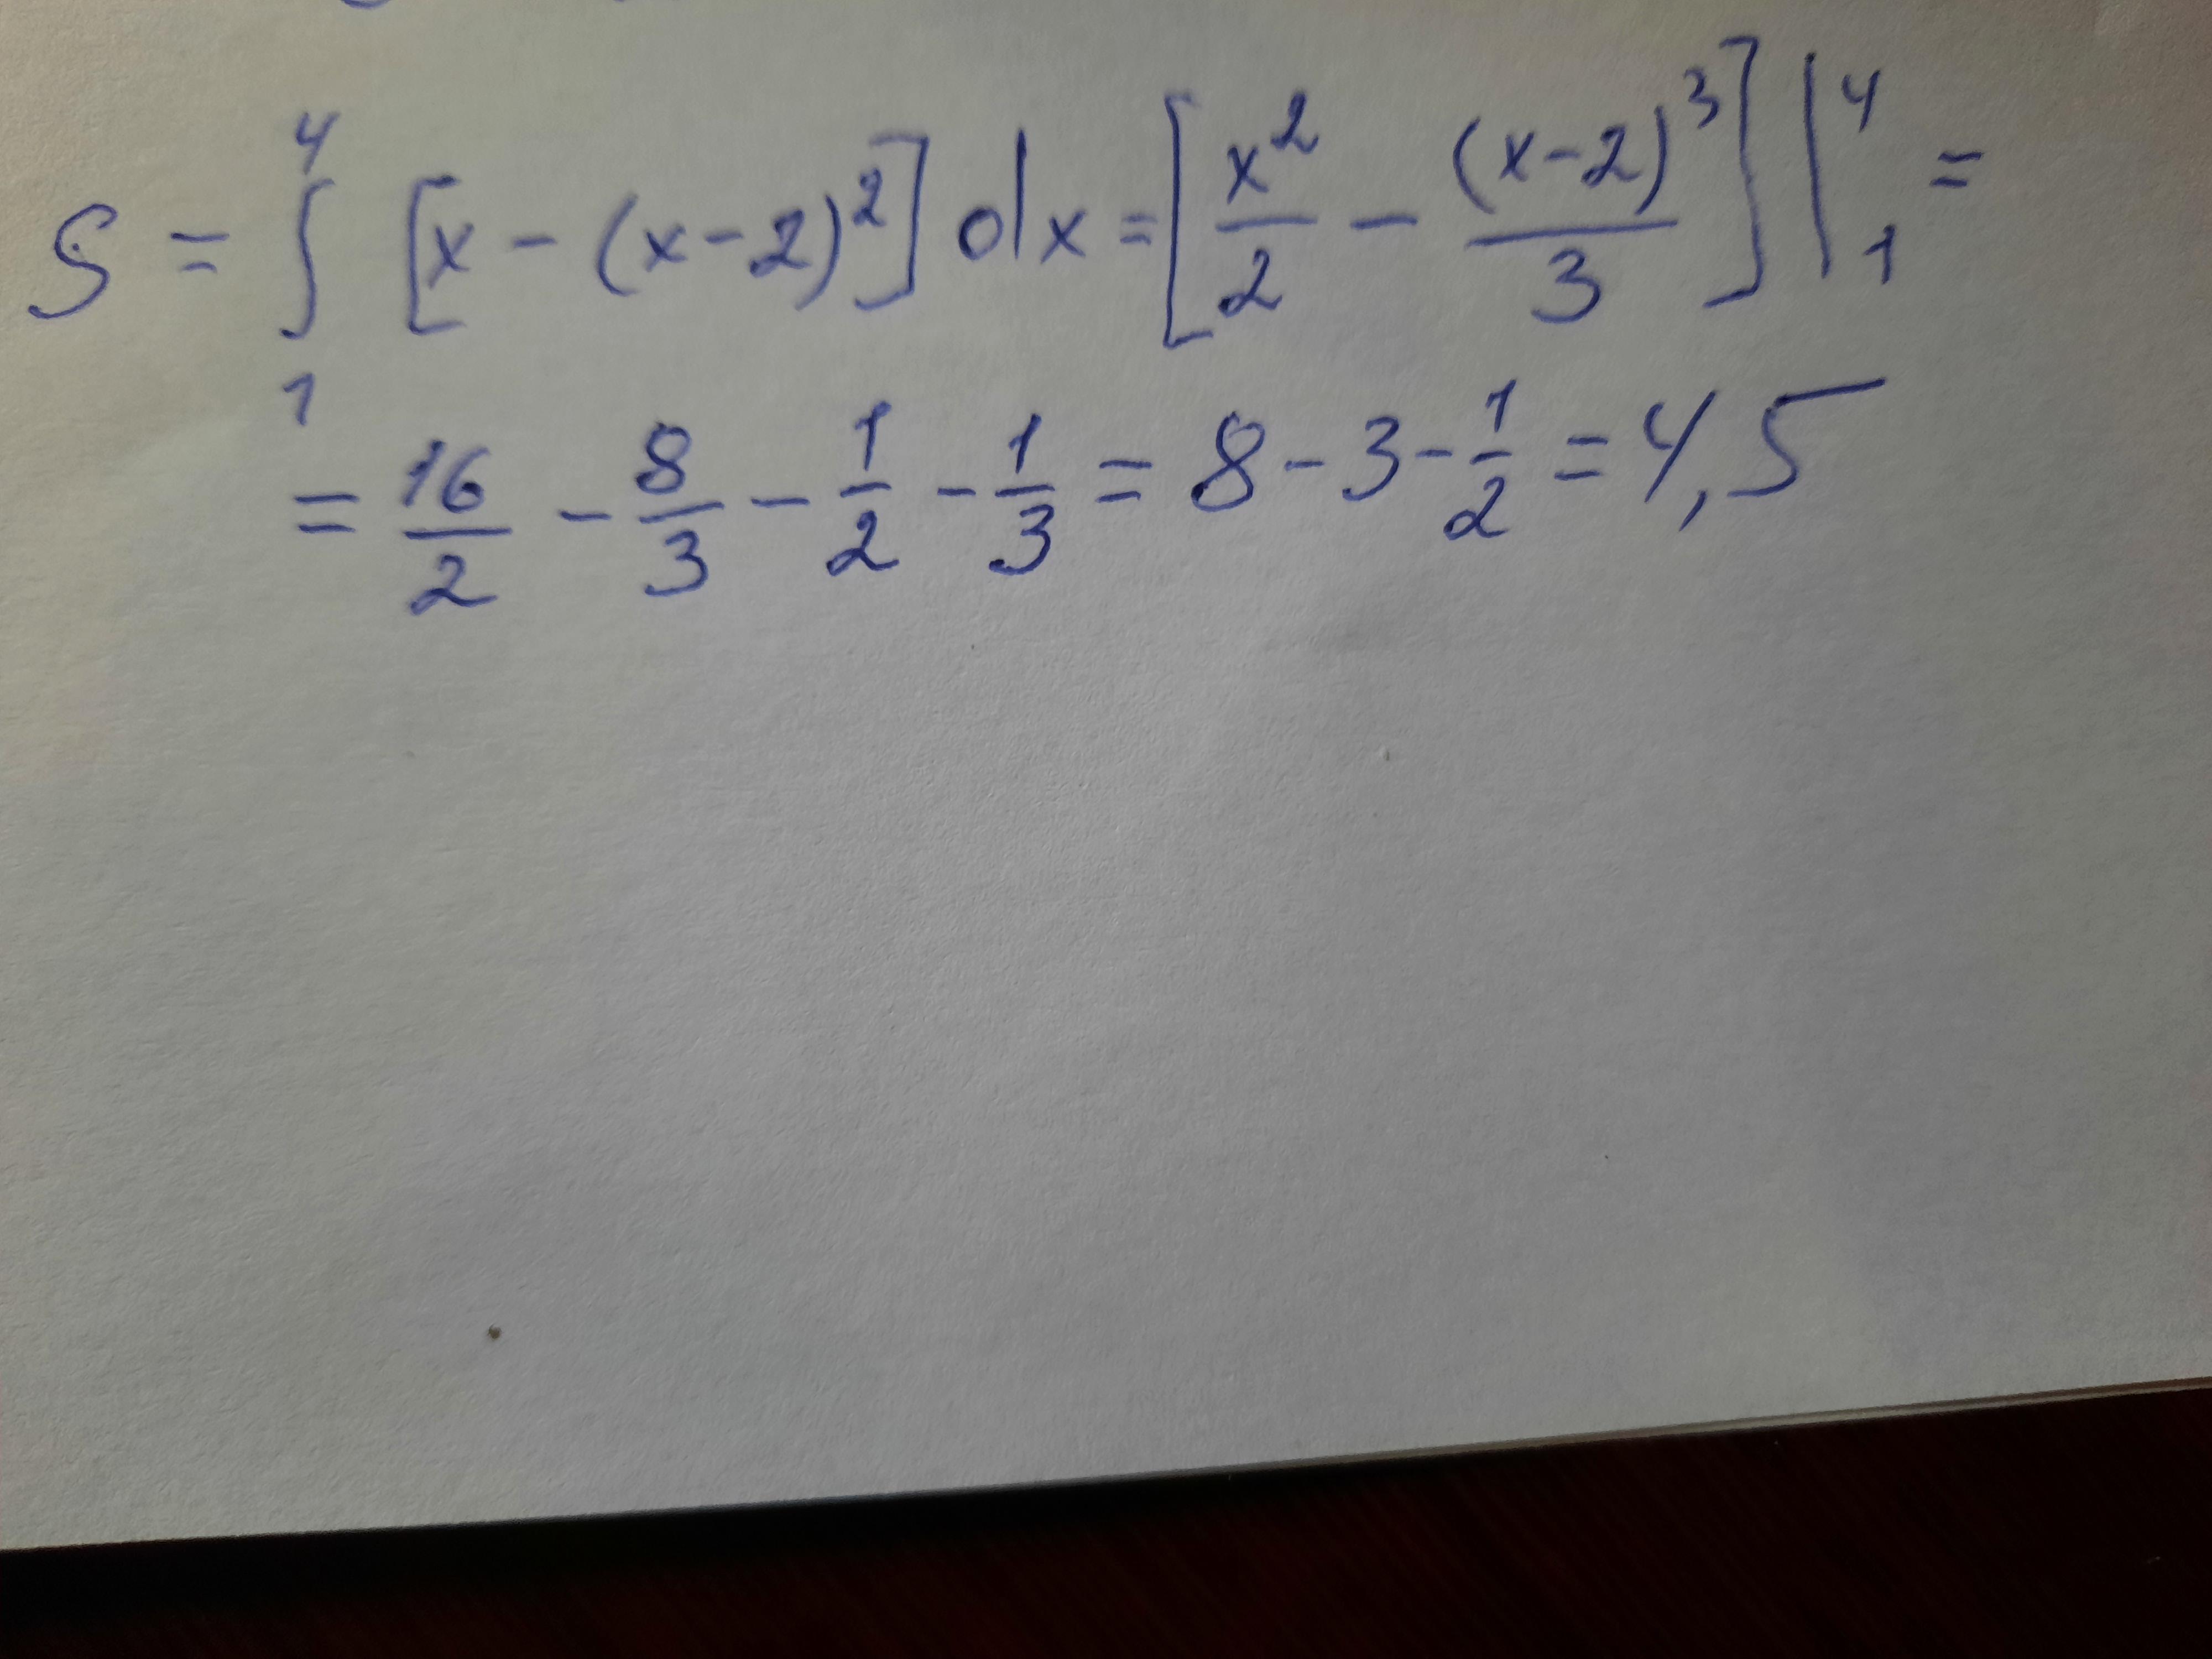 S = ∫₁⁴ [x - (x-2)²] dx = [x²/2 - (x-2)³/3] |₁⁴ =
= 16/2 - 8/3 - 1/2 - 1/3 = 8 - 3 - 1/2 = 4,5